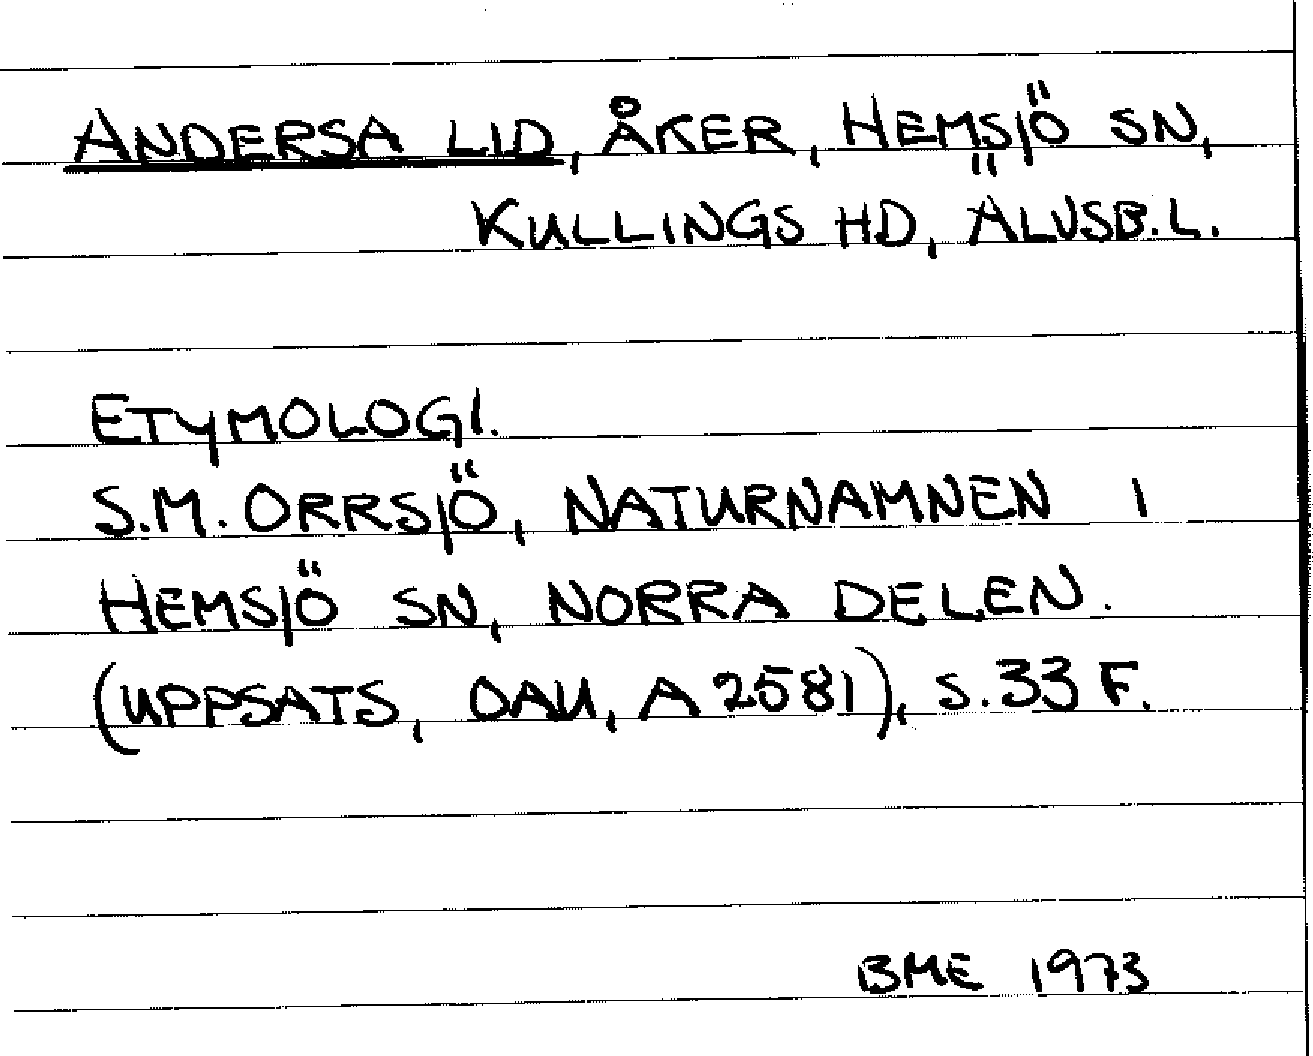 ANDERSA LID, ÅKER, HEMSJÖ SN,
KULLINGS HD, ÄLVSB.L.
ETYMOLOGI.
S.M. ORRSJÖ, NATURNAMNEN I
HEMSJÖ SN, NORRA DELEN.
(UPPSATS, OAU, A 2581), S. 33 F.
BME 1973